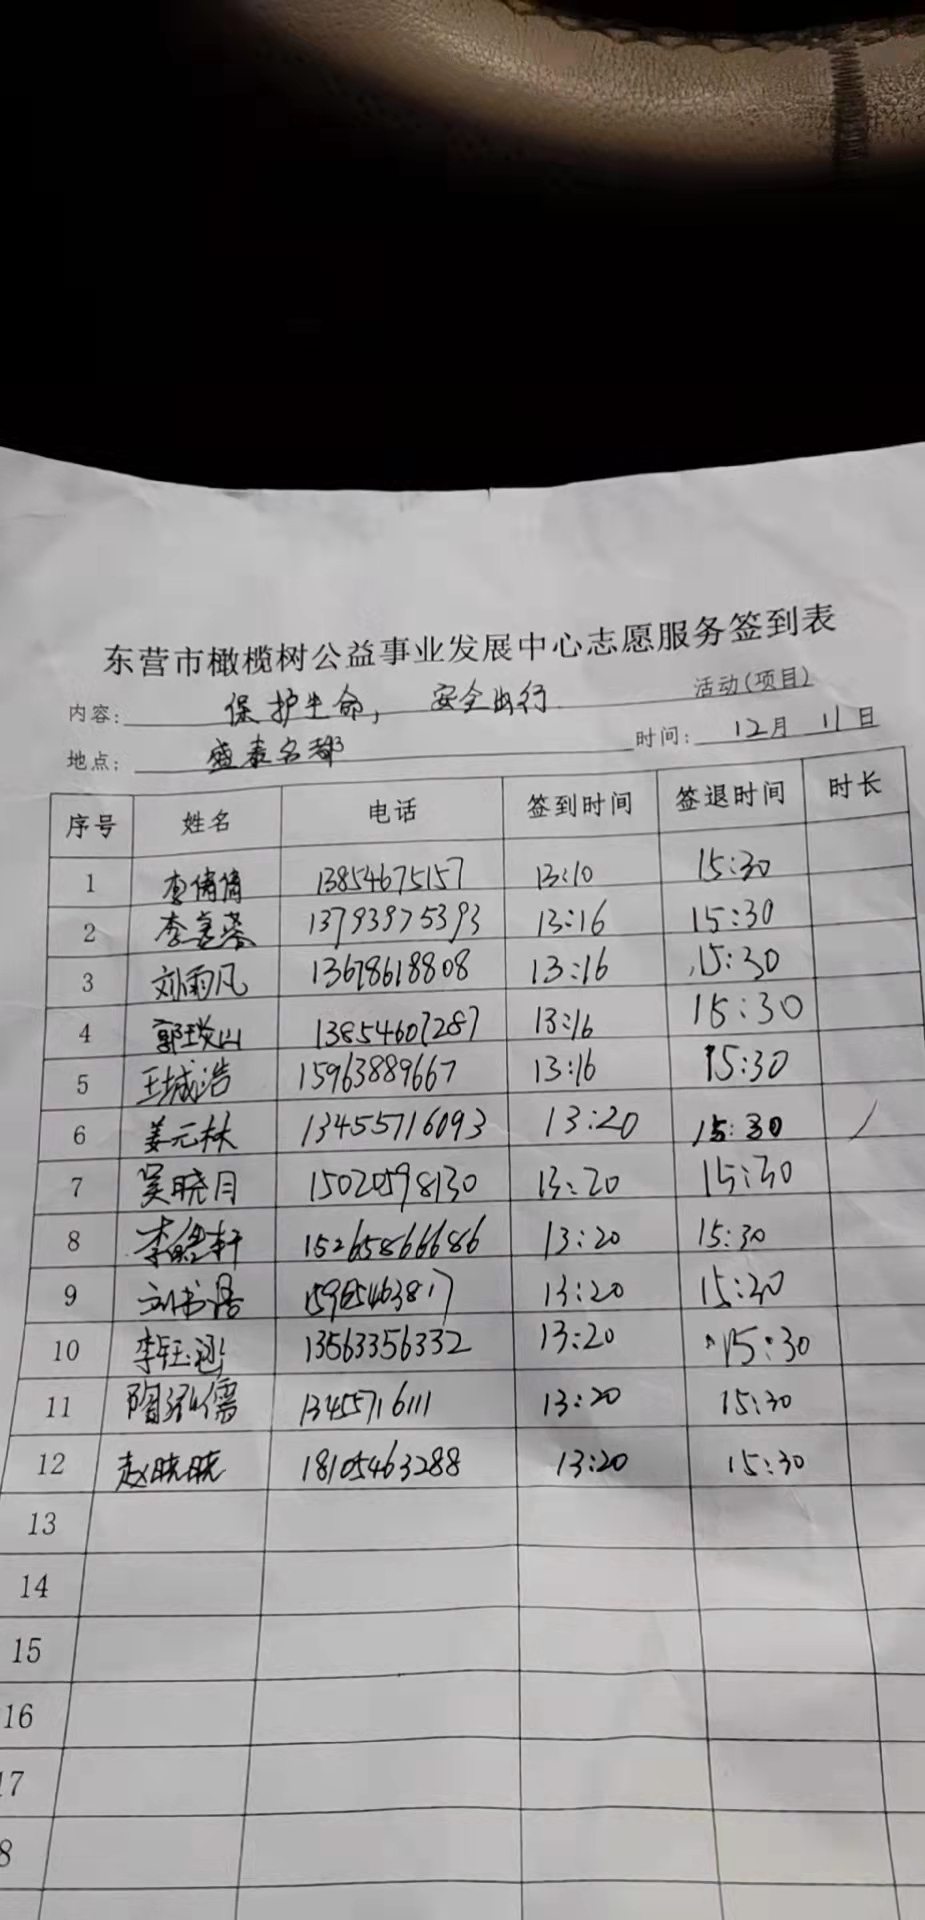 东营市橄榄树公益事业发展中心志愿服务签到表
内容: 保护生命, 安全出行 活动(项目)
地点: 盛泰名都 时间: 12月 11日
序号 姓名 电话 签到时间 签退时间 时长
1 李倩倩 13854675157 13:10 15:30
2 李 13793975393 13:16 15:30
3 刘雨凡 13678618808 13:16 15:30
4 郭琰山 13854607287 13:16 15:30
5 王城浩 15963889667 13:16 15:30
6 姜元林 13455716093 13:20 15:30 /
7 吴晓月 15020598130 13:20 15:30
8 李皓轩 15265866686 13:20 15:30
9 刘书 13:20 15:30
10 李钰涵 13563356332 13:20 15:30
11 陶泓儒 13455716111 13:20 15:30
12 赵晓晓 18105463288 13:20 15:30
13
14
15
16
17
8